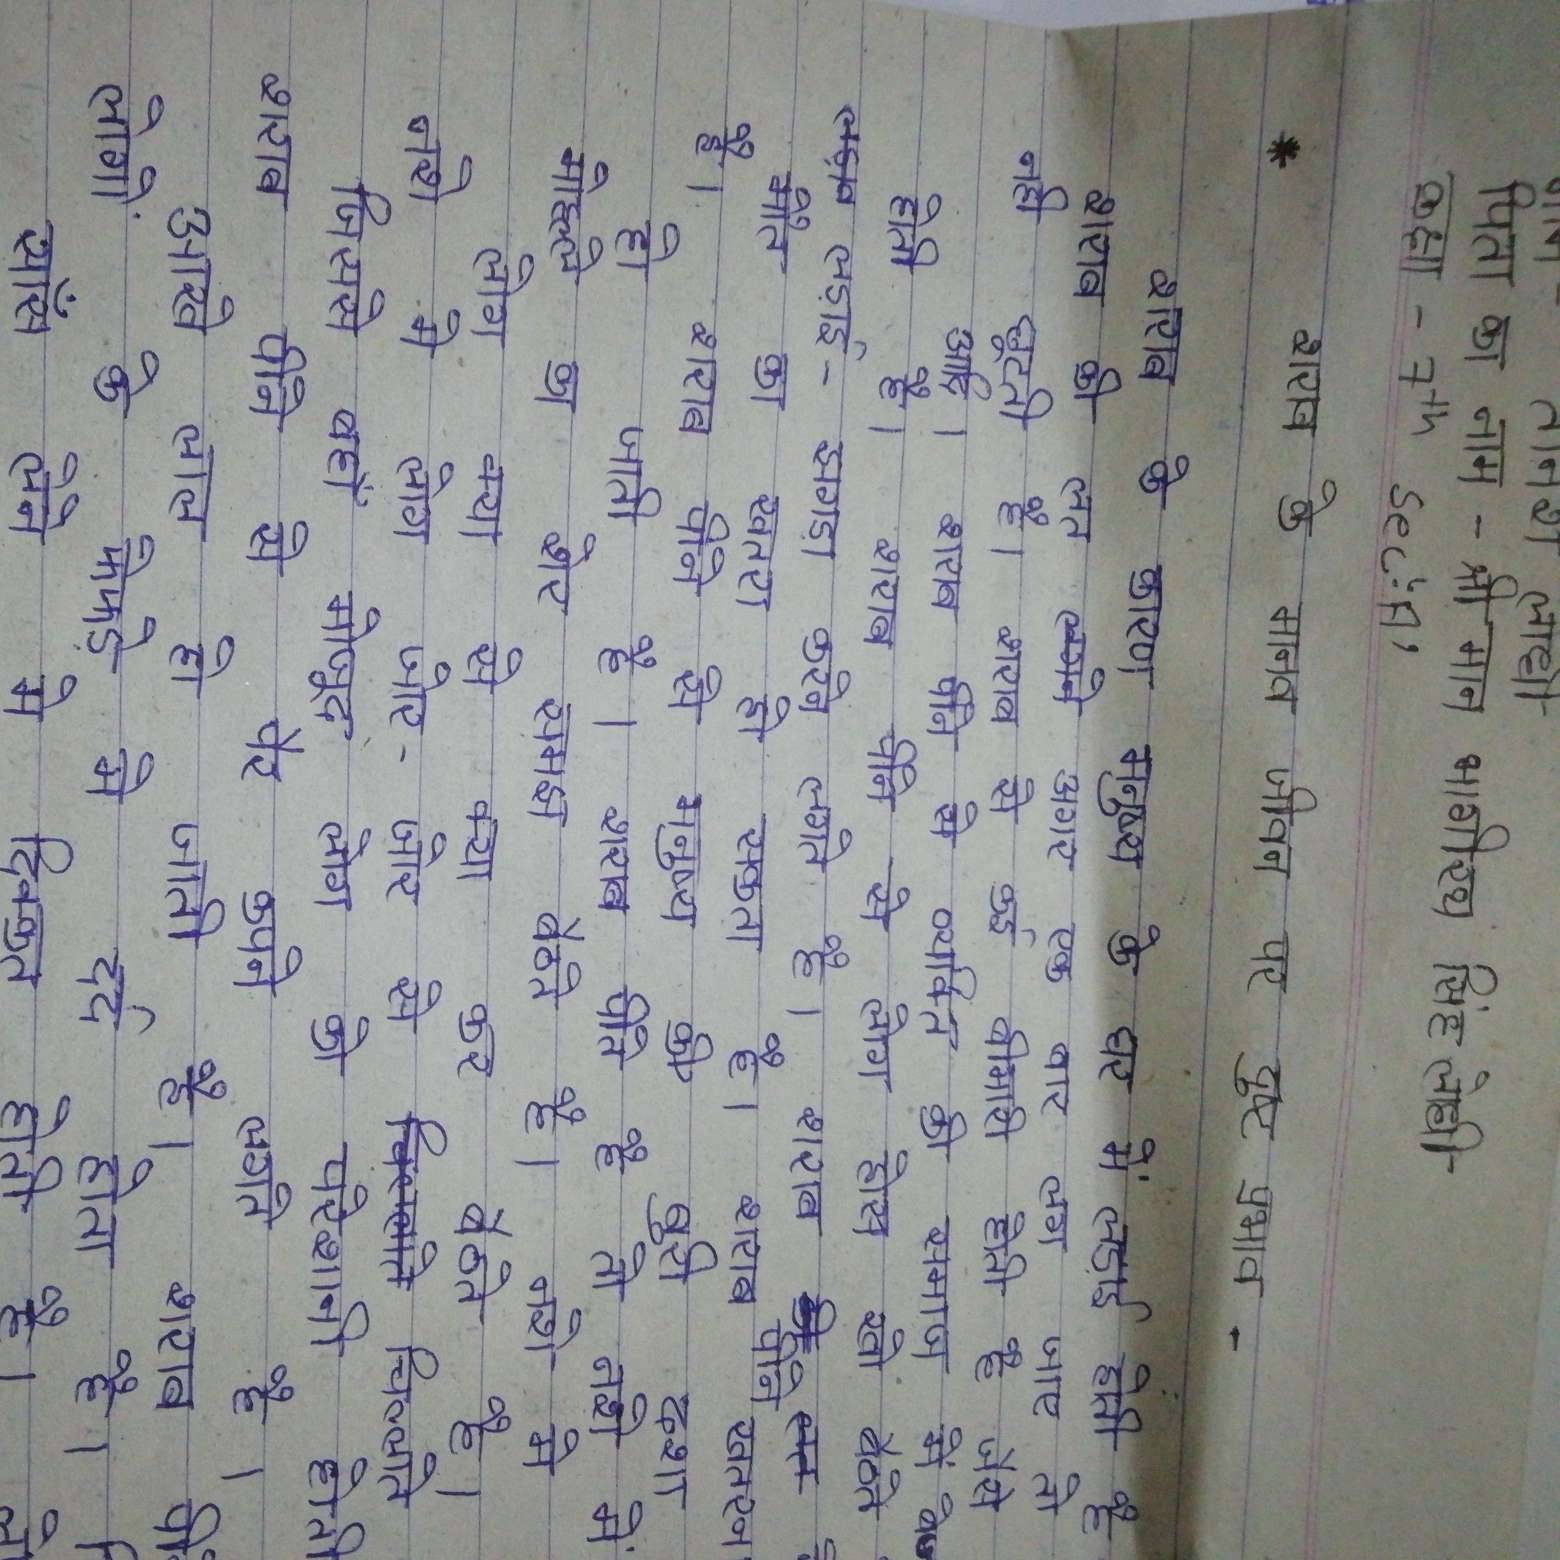 पिता का नाम - श्री मान भागीरथ सिंह लोधी
कक्षा - 7th sec:'A'
* शराब के मानव जीवन पर बुरे प्रभाव -
शराब के कारण मनुष्य के घर में लड़ाई होती है
शराब की लत लगने अगर एक बार लग जाए तो
नही छूटती है। शराब से कई बीमारी होती है जैसे
आदि। शराब पीने से व्यक्ति की समाज में
होती है। शराब पीने से लोग होस खो बैठते
लड़ाई - झगड़ा करने लगते है। शराब पीने
मौत का खतरा हो सकता है। शराब खतरन
है। शराब पीने से मनुष्य की बुरी दशा
हो जाती है। शराब पीते है तो नशे में
मोहल्ले का शेर समझ बैठते है। नशे मे
लोग क्या से क्या कर बैठते है।
नशे मे लोग जोर - जोर से चिल्लाते
जिससे वहाँ मोजूद लोग को परेशानी होती
शराब पीने से पैर कपने लगते है।
आखे लाल हो जाती है। शराब
लोगो के फेफड़े मे दर्द होता है।
साँस लेने मे दिक्कत होती है।